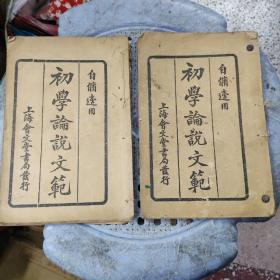 自脩適用
初學論說文範
上海會文堂書局發行
自脩適用
初學論說文範
上海會文堂書局發行